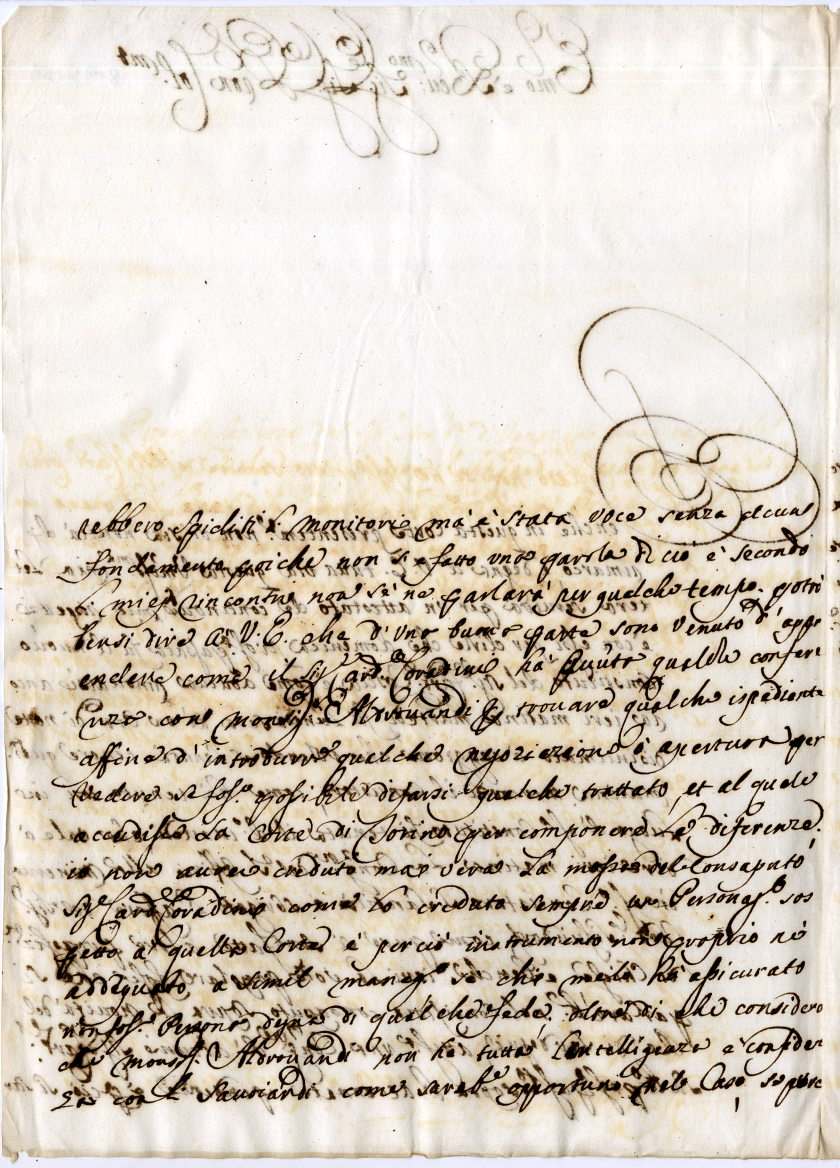 rebbero spediti i monitori, mà è stata voce senza alcun
fondamento, poiche non si è fatto una parola di ciò e secondo
i miei rincontri non se ne parlarà per qualche tempo. potrò
bensi dire à V. E. che d'una buona parte sono venuto d'appr
endere come il Sig.r Card.l Coradini hà hauuto qualche confer
enza con monsig.r Aldrouandi p trouare qualche ispediente
affine d'introdurre qualche negoziazione ò apertura per
vedere se foss.e possibile di farsi qualche trattato, et al quale
accudisse La Corte di Torino per componere Le diferenze.
io non aurei creduto mai vera La mossa del Consaputo
Sig.r Card. Coradini come Lo creduto sempre un Personag.o sos
petto à quella Corte, e perciò instrumento non proprio nè
addequato à simil maneg.o se chi me lo hà assicurato
non foss.e Persona degna di qualche fede, oltre di che considero
che monsig.r Aldrouandi non hà tutta L'intelligenza e confiden
za con i Sauoiardi come sareb.e opportuno nel Caso, se pure